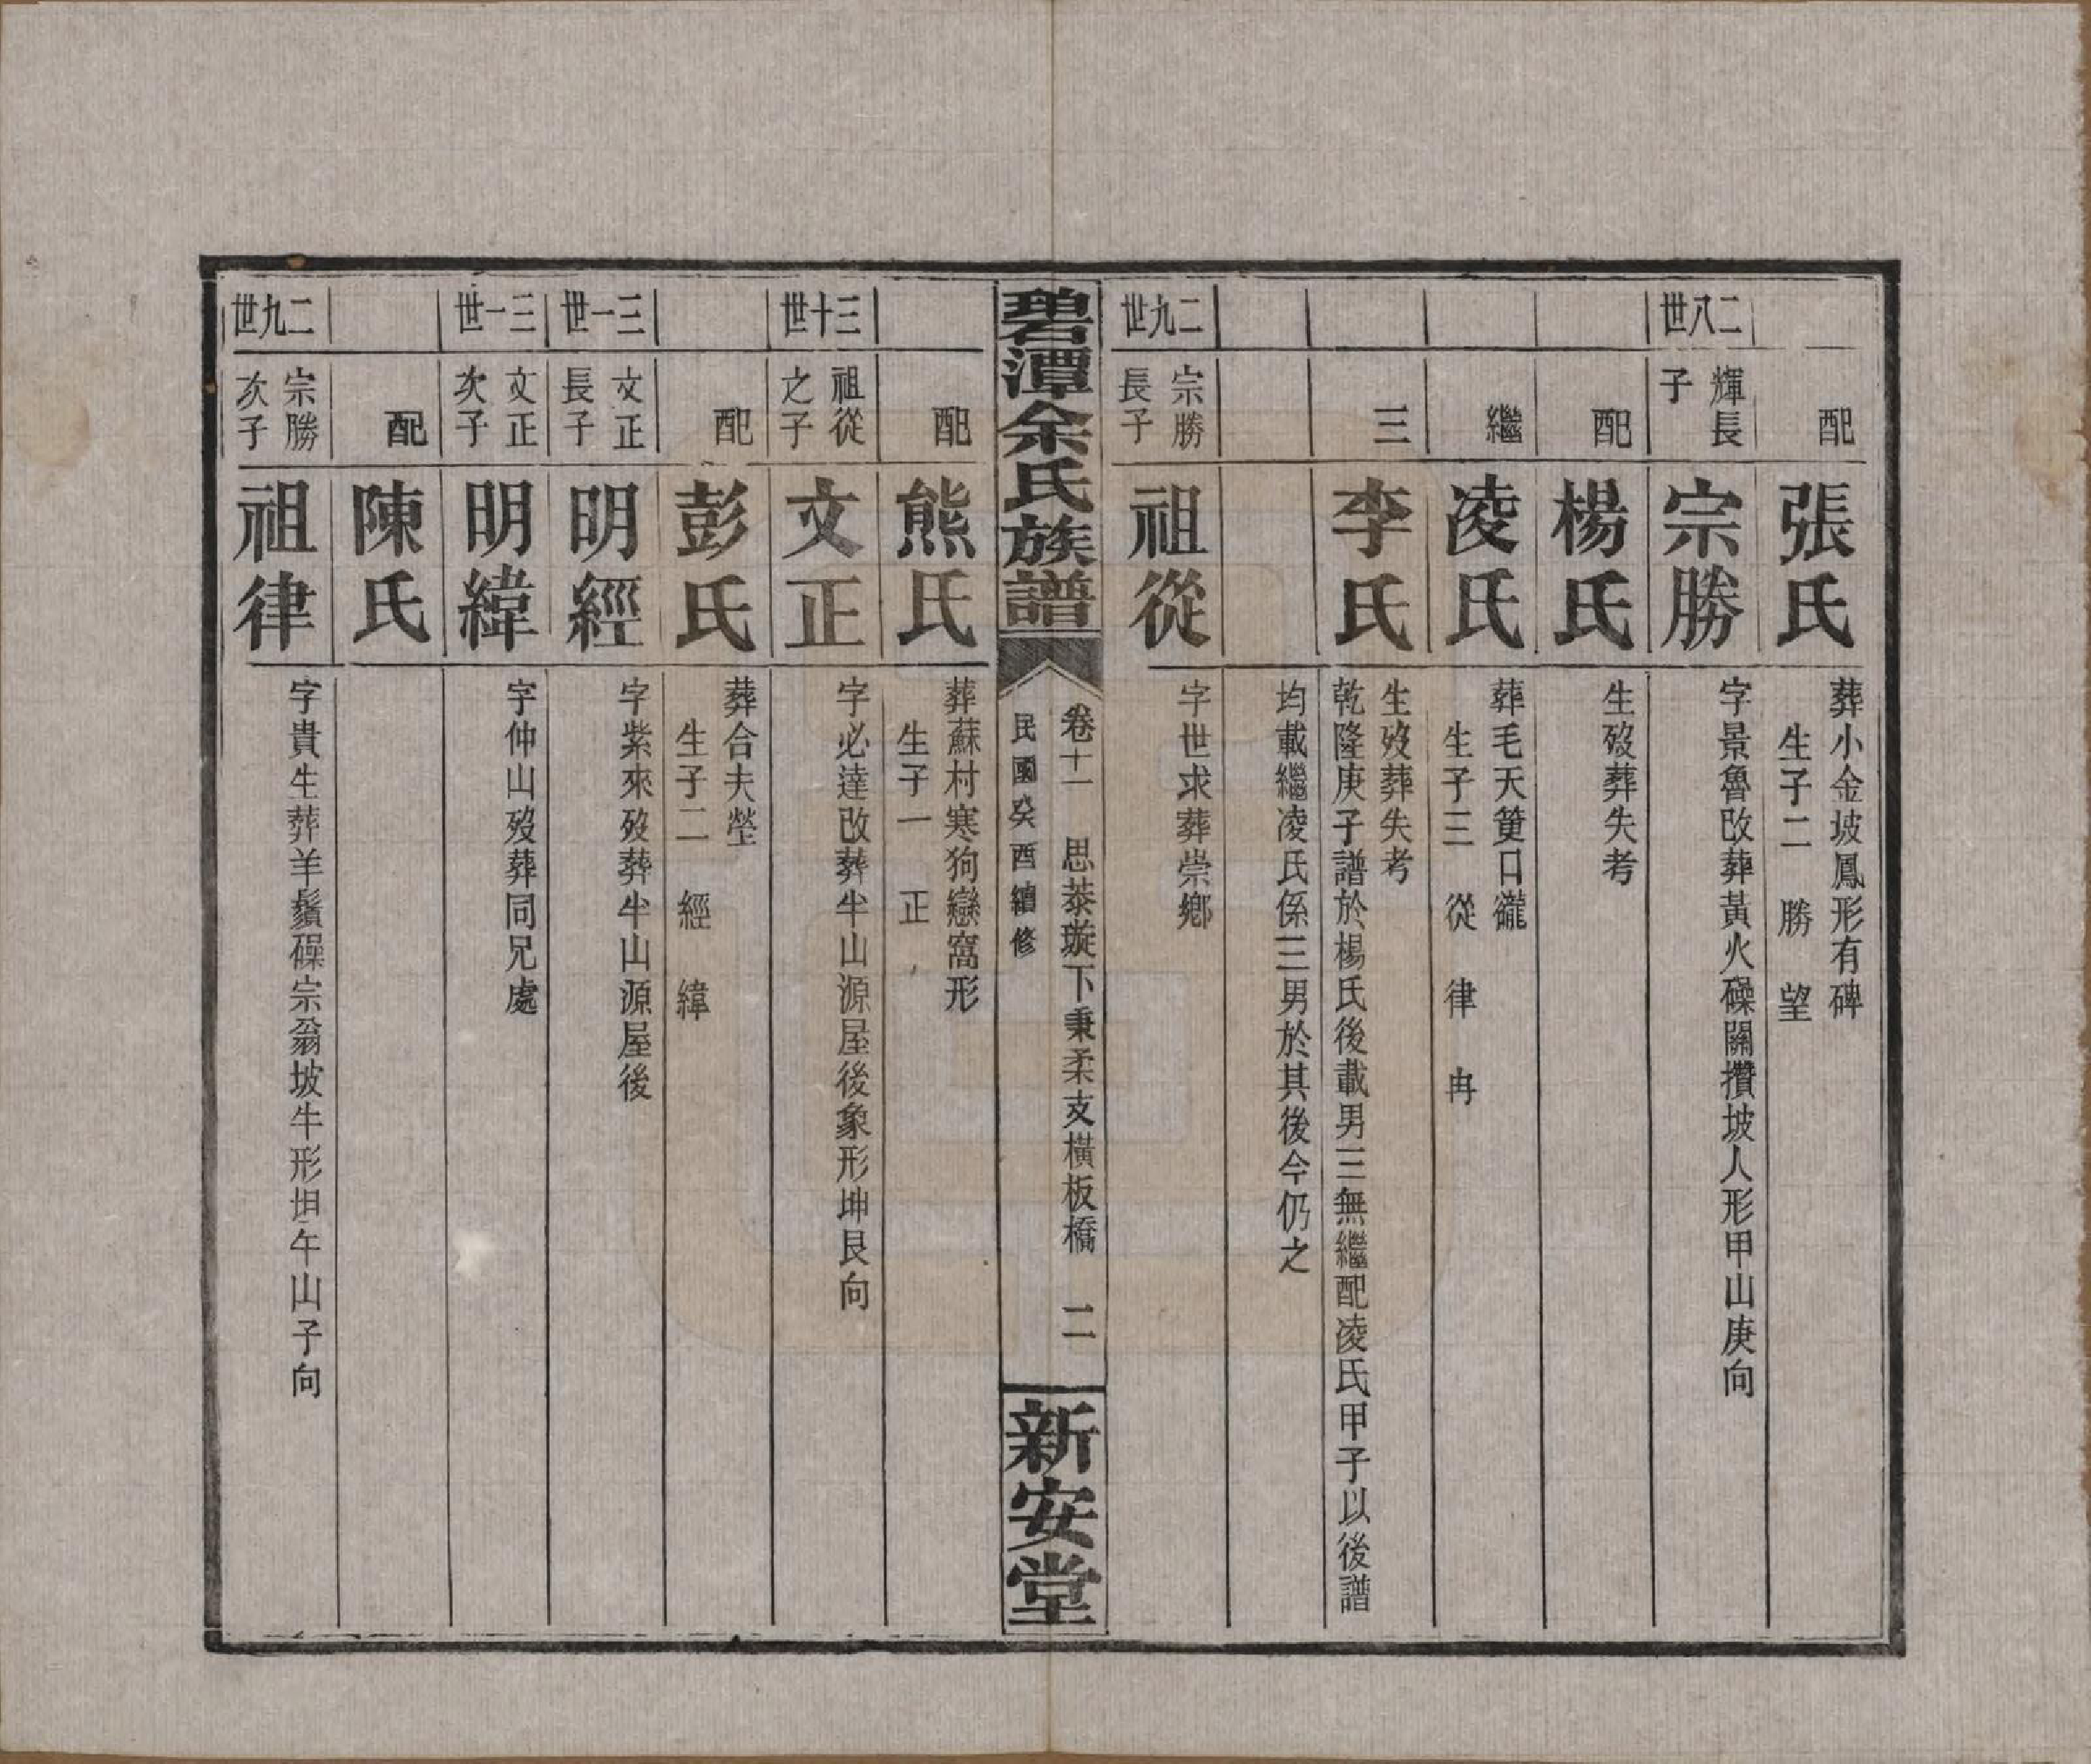 配
張氏
葬小金坡鳳形有碑
生子二　勝　望
二八世
輝長
子
宗勝
字景魯改葬黃火磼關攢坡人形甲山庚向
配
楊氏
生歿葬失考
繼
凌氏
葬毛天筻口𥖎
生子三　從　律　冉
三
李氏
生歿葬失考
乾隆庚子譜於楊氏後載男三無繼配凌氏甲子以後譜
均載繼凌氏係三男於其後今仍之
二九世
宗勝
長子
祖從
字世求葬崇鄉
碧潭余氏族譜
卷十一　思恭璇下秉柔支橫板橋　二
民國癸酉續修
新安堂
配
熊氏
葬蘇村寒狗戀窩形
生子一　正
三十世
祖從
之子
文正
字必達改葬半山源屋後象形坤艮向
配
彭氏
葬合夫塋
生子二　經　緯
三一世
文正
長子
明經
字紫來歿葬半山源屋後
三一世
文正
次子
明緯
字仲山歿葬同兄處
配
陳氏
二九世
宗勝
次子
祖律
字貴生葬羊鬚磼宗翁坡牛形坦午山子向